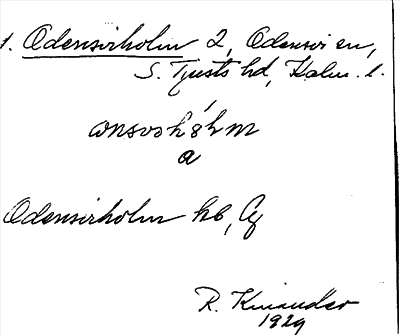 1. Odensviholm 2, Odensvi sn,
S. Tjusts hd, Kalm. l.
a
Odensviholm hb, Cg
R. Kinander
1929